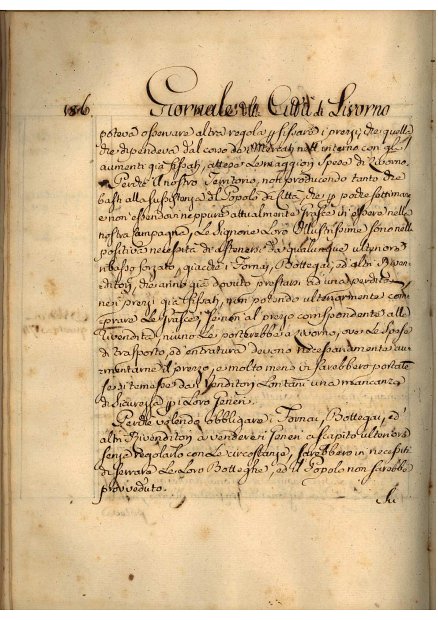 186. Giornale della Città di Livorno
poteva osservare altra regola p fissare i prezzi, che quella
che dipendeva dal corso de Mercati nell'interno con gl'
aumenti già fissati, attese le maggiori spese di Livorno.
Perchè il nostro Territorio, non producendo tanto che
basti alla sussistenza del Popolo di Città, che p poche settimane
e non essendovi neppure attualmente grasce in essere nella
nostra Campagna, le Signorie Loro Illustrissime sono nella
positiva necessità di astenersi da qualunque ulteriore
ribasso forzato, giacchè i Fornai, Bottegai, ed altri Riven
ditori, che anno già dovuto prestarsi ad una perdita
nei prezzi già fissati, non potendo ulteriormente com
prare le grasce, e generi al prezzo corrispondente alla
vendita, niuno le porterebbe a Livorno, ove le spese
di trasporto, ed entratura devono necessariamente au
mentarne il prezzo, e molto meno vi sarebbero portate
se si temesse dai Venditori Lontani una mancanza
di sicurezza p i Loro Generi.
Perchè volendo obbligare i Fornai, Bottegai, ed
altri Rivenditori a vendere i generi a scapito ulteriore
senza regolarlo con le circostanze, sarebbero in necessità
di serrare le Loro Botteghe, ed il Popolo non sarebbe
provveduto.